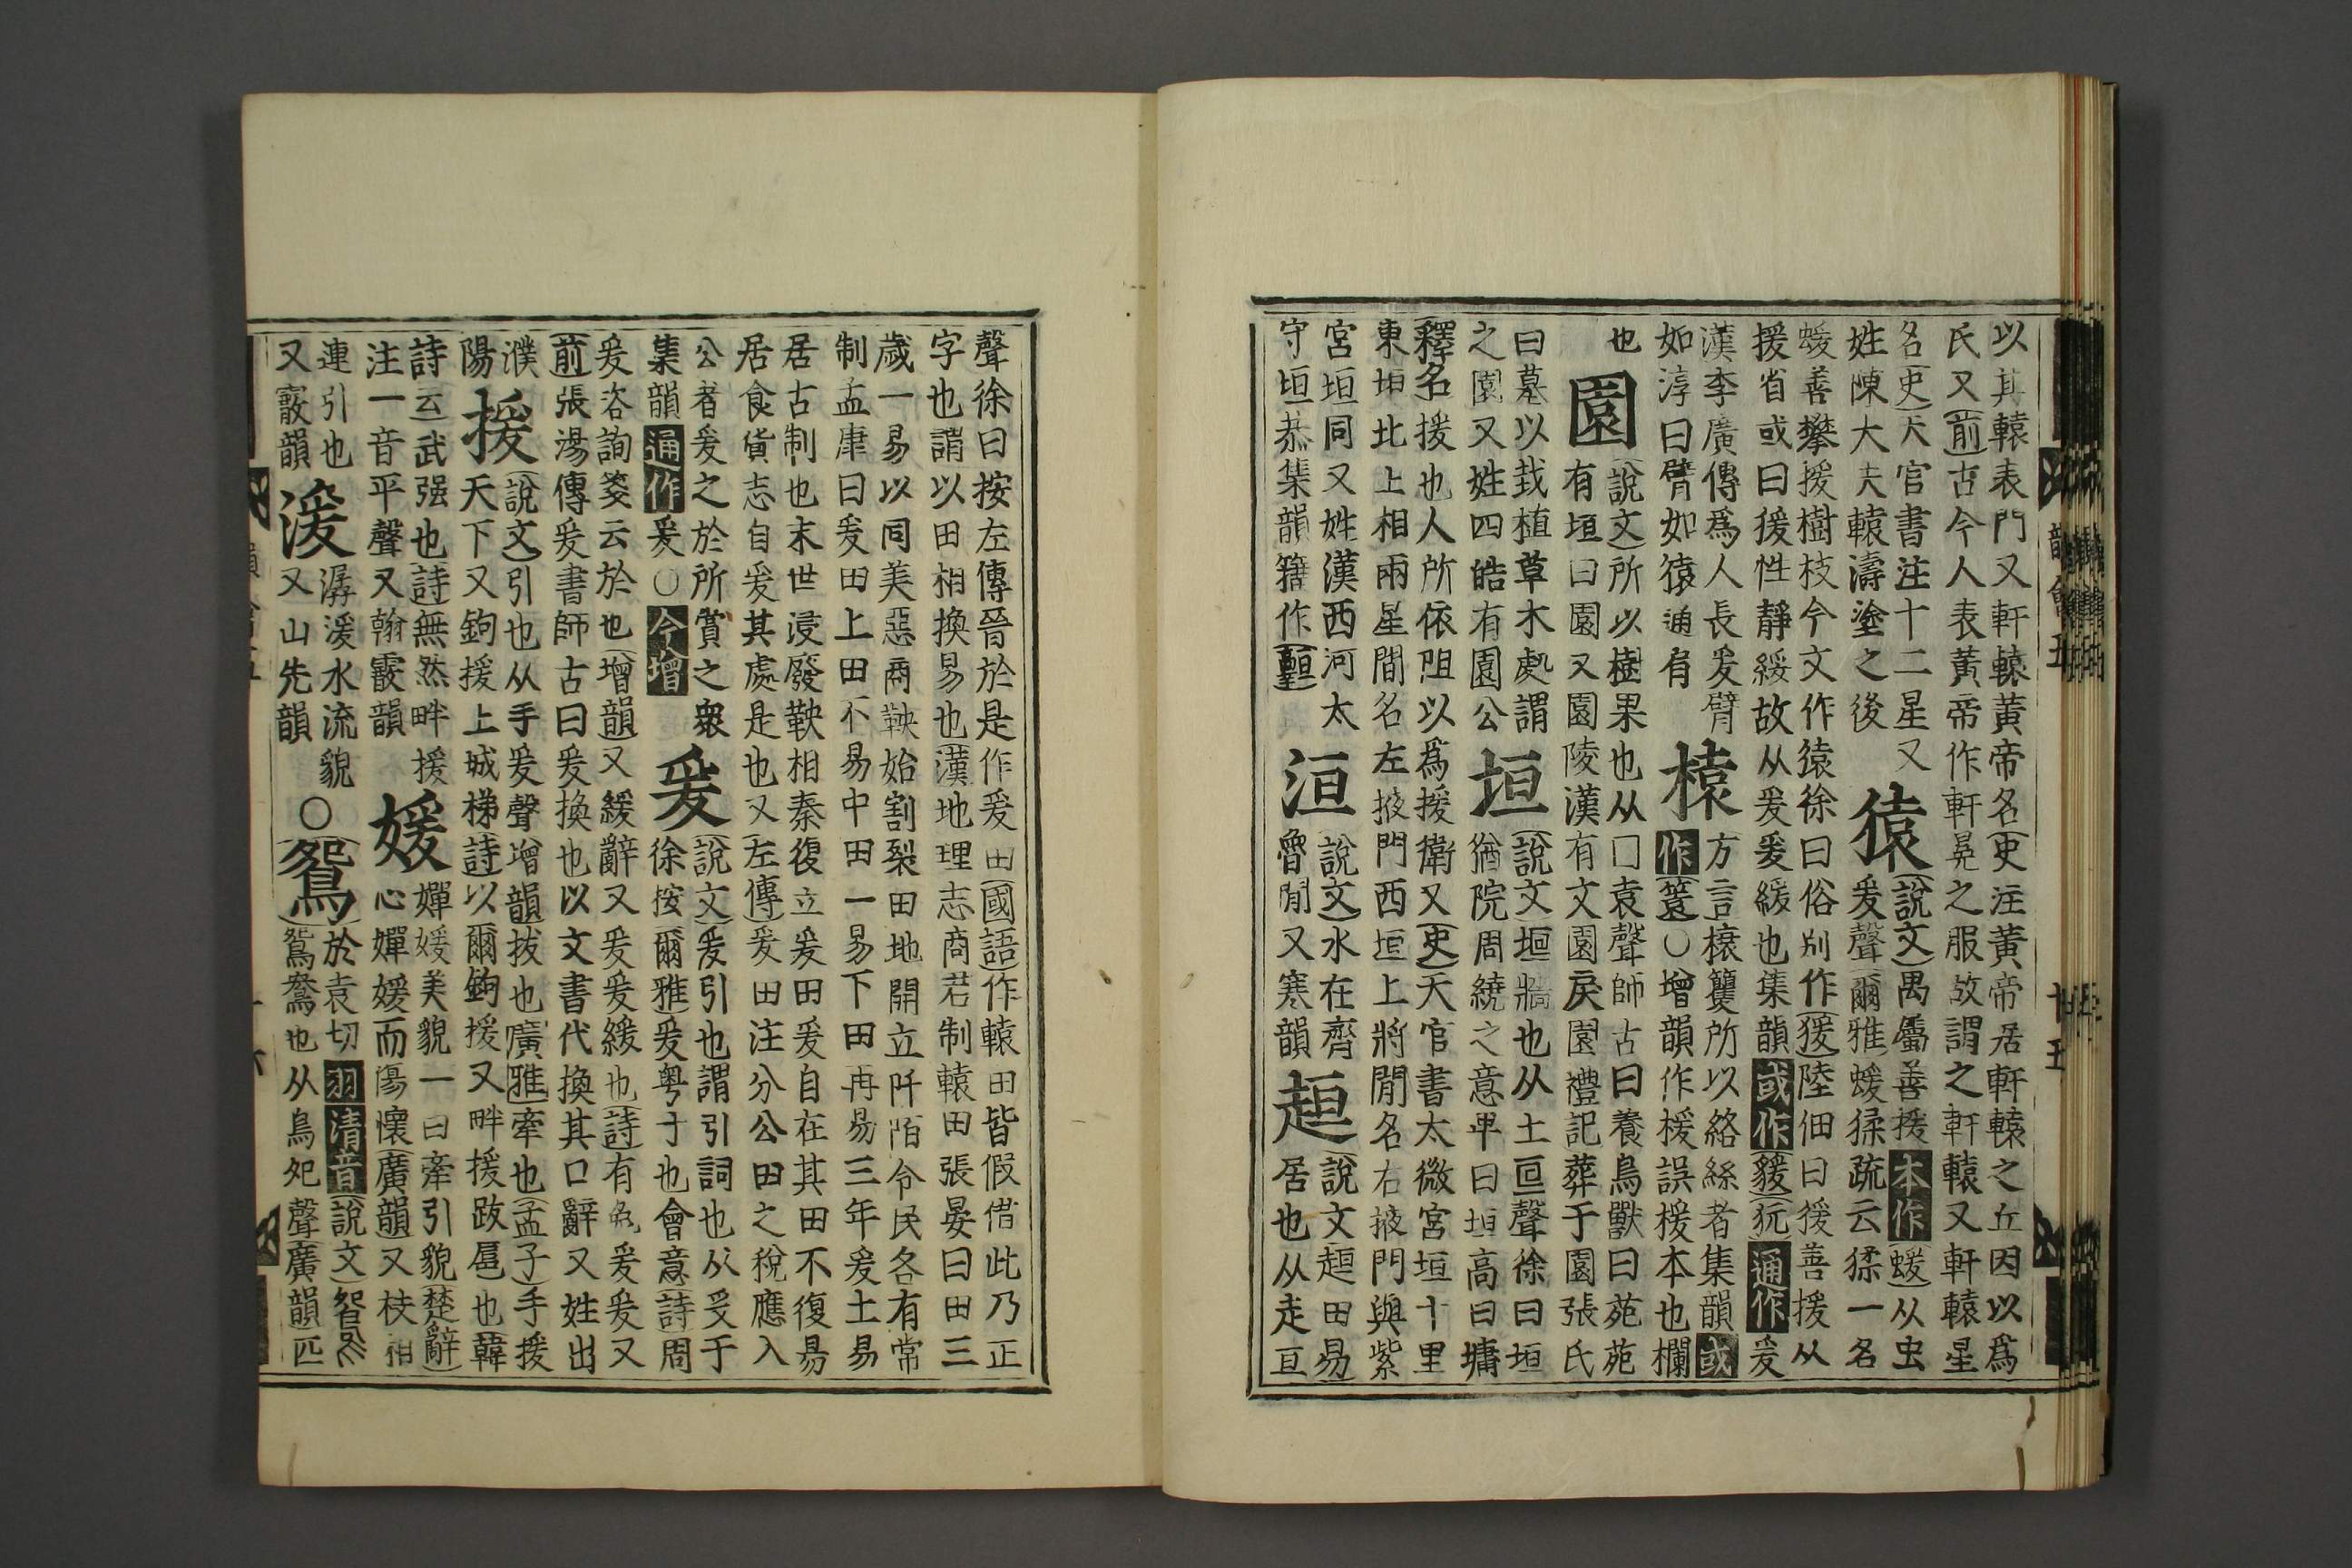 以其轅表門又軒轅黃帝名(史)注黃帝居軒轅之丘因以爲
氏又(前)古今人表黃帝作軒冕之服故謂之軒轅又軒轅星
名(史)天官書注十二星又
姓陳大夫轅濤塗之後
猿
(說文)禺屬善援本作(蝯)从虫
爰聲(爾雅)蝯猱疏云猱一名
蝯善攀援樹枝今文作猿徐曰俗別作(猨)陸佃曰猨善援从
援省或曰猨性靜緩故从爰爰緩也集韻或作(貜)(㹳)通作爰
漢李廣傳爲人長爰臂
如淳曰臂如猿通肩
榬
方言榬籆所以絡絲者集韻或
作(䈠)○增韻作援誤援本也欄
也
園
(說文)所以樹果也从囗袁聲師古曰養鳥獸曰苑苑
有垣曰園又園陵漢有文園戾園禮記葬于園張氏
曰墓以栽植草木處謂
之園又姓四皓有園公
垣
(說文)垣牆也从土亘聲徐曰垣
猶院周繞之意卑曰垣高曰墉
(釋名)援也人所依阻以爲援衛又(史)天官書太微宮垣十里
東垣北上相兩星間名左掖門西垣上將閒名右掖門與紫
宮垣同又姓漢西河太
守垣恭集韻籒作(𩫨)
洹
(說文)水在齊
魯閒又寒韻
趄
(說文)趄田易
居也从走亘
聲徐曰按左傳晉於是作爰田(國語)作轅田皆假借此乃正
字也謂以田相換易也(漢)地理志商君制轅田張晏曰田三
歲一易以同美惡商鞅始割裂田地開立阡陌令民各有常
制孟康曰爰田上田不易中田一易下田再易三年爰土易
居古制也末世浸廢鞅相秦復立爰田爰自在其田不復易
居食貨志自爰其處是也又(左傳)爰田注分公田之稅應入
公者爰之於所賞之衆
集韻通作爰○今增
爰
(說文)爰引也謂引詞也从𠬪于
徐按(爾雅)爰粤于也會意(詩)周
爰咨詢箋云於也(增韻)又緩辭又爰爰緩也(詩)有兔爰爰又
(前)張湯傳爰書師古曰爰換也以文書代換其口辭又姓出
濮
陽
援
(說文)引也从手爰聲增韻拔也(廣雅)牽也(孟子)手援
天下又鉤援上城梯(詩)以爾鉤援又畔援跋扈也(韓
詩)云武强也(詩)無然畔援
注一音平聲又翰霰韻
媛
嬋媛美貌一曰牽引貌(楚辭)
心嬋媛而傷懷(廣韻)又枝相
連引也
又霰韻
湲
潺湲水流貌
又山先韻
○(鴛)
於袁切羽清音(說文)
鴛鴦也从鳥夗聲(廣韻)匹